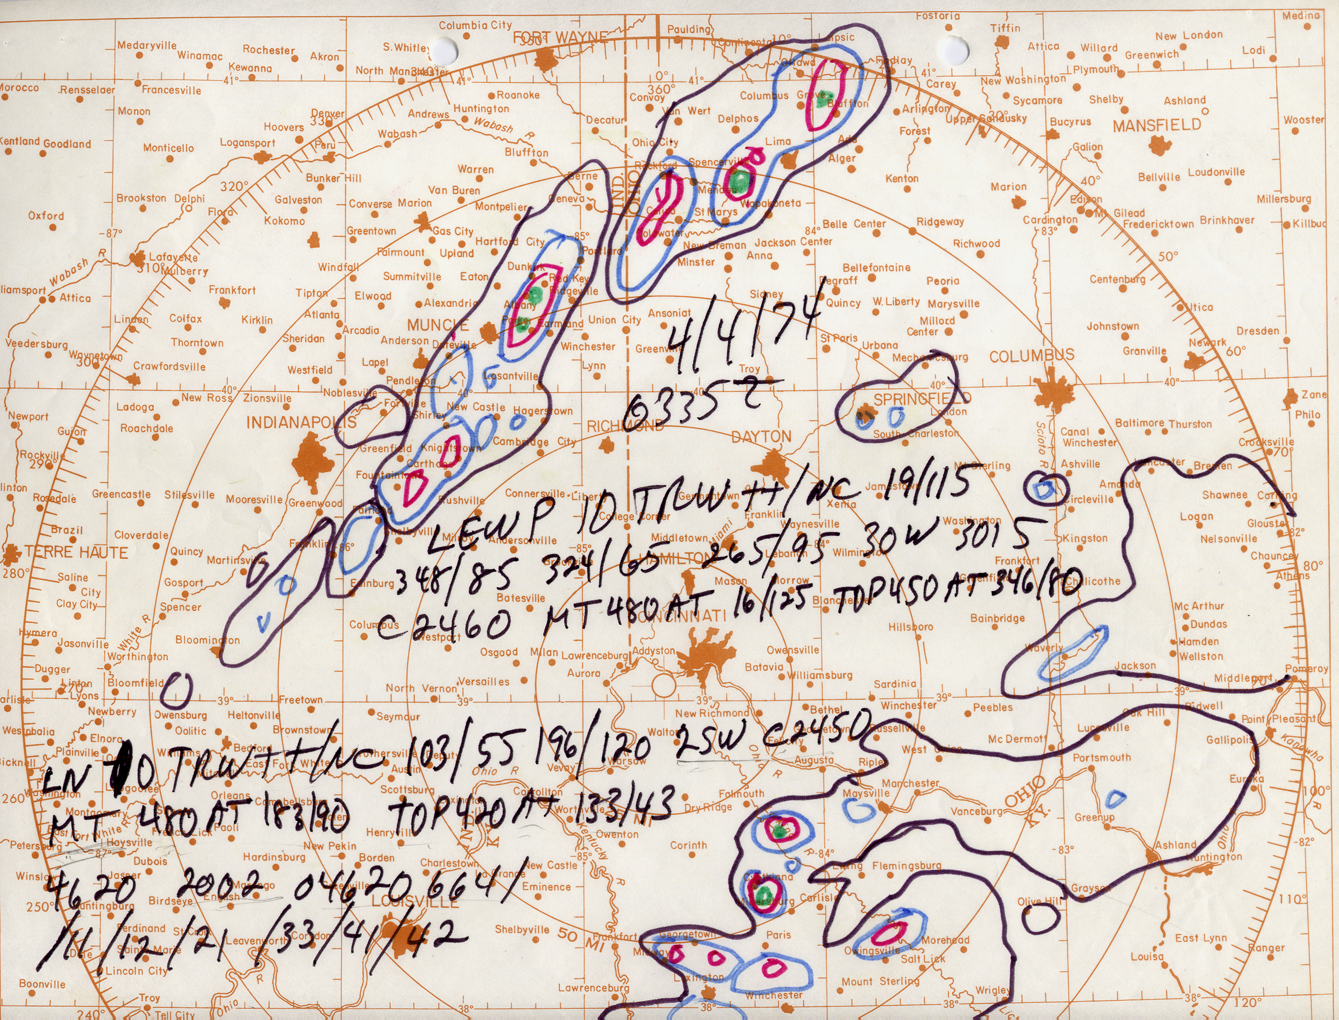 Columbia City
FORT WAYNE
Paulding
Fostoria
Tiffin
Medina
Medaryville
Winamac
Rochester
Akron
S. Whitley
350°
10°
Attica
Willard
New London
Greenwich
Lodi
Kewanna
North Manchester
340°
41°
0°
360°
41°
Findlay
41°
Carey
New Washington
Plymouth
Morocco
Rensselaer
Francesville
Roanoke
Convoy
Van Wert
Columbus Grove
Bluffton
Arlington
Sycamore
Shelby
Ashland
Monon
Denver
Huntington
Decatur
Delphos
Upper Sandusky
Bucyrus
MANSFIELD
Wooster
Kentland
Goodland
Monticello
Logansport
Hoovers
Peru
Andrews
Wabash
Wabash R
Bluffton
Ohio City
Lima
Ada
Forest
Galion
Warren
Rockford
Spencerville
Alger
Kenton
Bellville
Loudonville
320°
Bunker Hill
Van Buren
Berne
Geneva
IND.
OHIO
Marion
40°
Brookston
Delphi
Flora
Galveston
Converse
Marion
Montpelier
St Marys
Wapakoneta
Edison
Mt Gilead
Millersburg
Oxford
Kokomo
Greentown
Gas City
Belle Center
Ridgeway
Cardington
Fredericktown
Brinkhaver
-87°
Hartford City
85°
New Bremen
Jackson Center
84°
Richwood
83°
Lafayette
Mulberry
Windfall
Fairmount
Upland
Minster
Anna
50°
Attica
Frankfort
Tipton
Summitville
Eaton
Dunkirk
Red Key
Bellefontaine
Centenburg
Elwood
Alexandria
Albany
Ridgeville
Sidney
Degraff
Peoria
Utica
Colfax
Kirklin
Atlanta
Quincy
W. Liberty
Marysville
Thorntown
Sheridan
Arcadia
MUNCIE
Union City
Ansonia
Milford Center
Johnstown
Dresden
Veedersburg
Anderson
Winchester
Greenville
4/4/74
St Paris
Urbana
Granville
Newark
Waynetown
300°
Lapel
Mechanicsburg
COLUMBUS
60°
Crawfordsville
Westfield
Lynn
Troy
40°
Noblesville
Pendleton
Losantville
Zane
Newport
Ladoga
New Ross
Zionsville
0335Z
SPRINGFIELD
London
Philo
Roachdale
INDIANAPOLIS
Shirley
New Castle
Hagerstown
RICHMOND
DAYTON
South Charleston
Canal Winchester
Baltimore
Thurston
Rockville
290°
Greenfield
Knightstown
Cambridge City
Scioto R
Crooksville
70°
Rosedale
Greencastle
Stilesville
Mooresville
Greenwood
Rushville
Connersville
Ashville
Circleville
Amanda
Lancaster
Bremen
Shawnee
Corning
LEWP 10 TRW++/NC 19/115
Brazil
Cloverdale
Franklin
86°
Logan
Nelsonville
Glouster
TERRE HAUTE
Quincy
Martinsville
348/85 324/65 265/95 30W 3015
Kingston
Chauncey
280°
Saline City
Gosport
Edinburg
Batesville
Chillicothe
80°
Athens
Clay City
Spencer
C2460 MT 480 AT 16/125 TOP 450 AT 346/80
Hymera
Jasonville
White R
Bloomington
Columbus
CINCINNATI
Hillsboro
Bainbridge
Mc Arthur
Dundas
Hamden
Wellston
Dugger
Linton
Worthington
Bloomfield
Osgood
Milan
Lawrenceburg
Addyston
Owensville
Batavia
Waverly
Jackson
Pomeroy
Lyons
Aurora
Williamsburg
Middleport
Newberry
Owensburg
39°
Freetown
North Vernon
Versailles
39°
Sardinia
39°
Heltonville
Seymour
New Richmond
Bethel
Winchester
Peebles
Oak Hill
Bidwell
Point Pleasant
Elnora
Oolitic
Brownstown
Russellville
Mc Dermott
Lucasville
Gallipolis
Kanawha
LN 10 TRW++/NC 103/55 196/120 25W C2450
Augusta
Ripley
Portsmouth
Eureka
100°
260°
Scottsburg
Vevay
Warsaw
Falmouth
Maysville
Manchester
Vanceburg
OHIO
KY.
Greenup
82°
MT 480 AT 183/90 TOP 420 AT 133/43
Dry Ridge
Owenton
Petersburg
Haysville
87°
New Pekin
Corinth
84°
83°
Ashland
Huntington
Dubois
Hardinsburg
Borden
Charlestown
85°
New Castle
Flemingsburg
Grayson
110°
4620 2002 04620 6641
Birdseye
English
LOUISVILLE
Eminence
Carlisle
Olive Hill
250°
/11/12/21 /33/41/42
Shelbyville
50 MI
Frankfort
Georgetown
Paris
Owingsville
Morehead
Salt Lick
East Lynn
Ranger
Lincoln City
Lexington
Louisa
Boonville
Lawrenceburg
Winchester
Mount Sterling
Wrigley
240°
Troy
Tell City
Ohio R
38°
38°
38°
120°